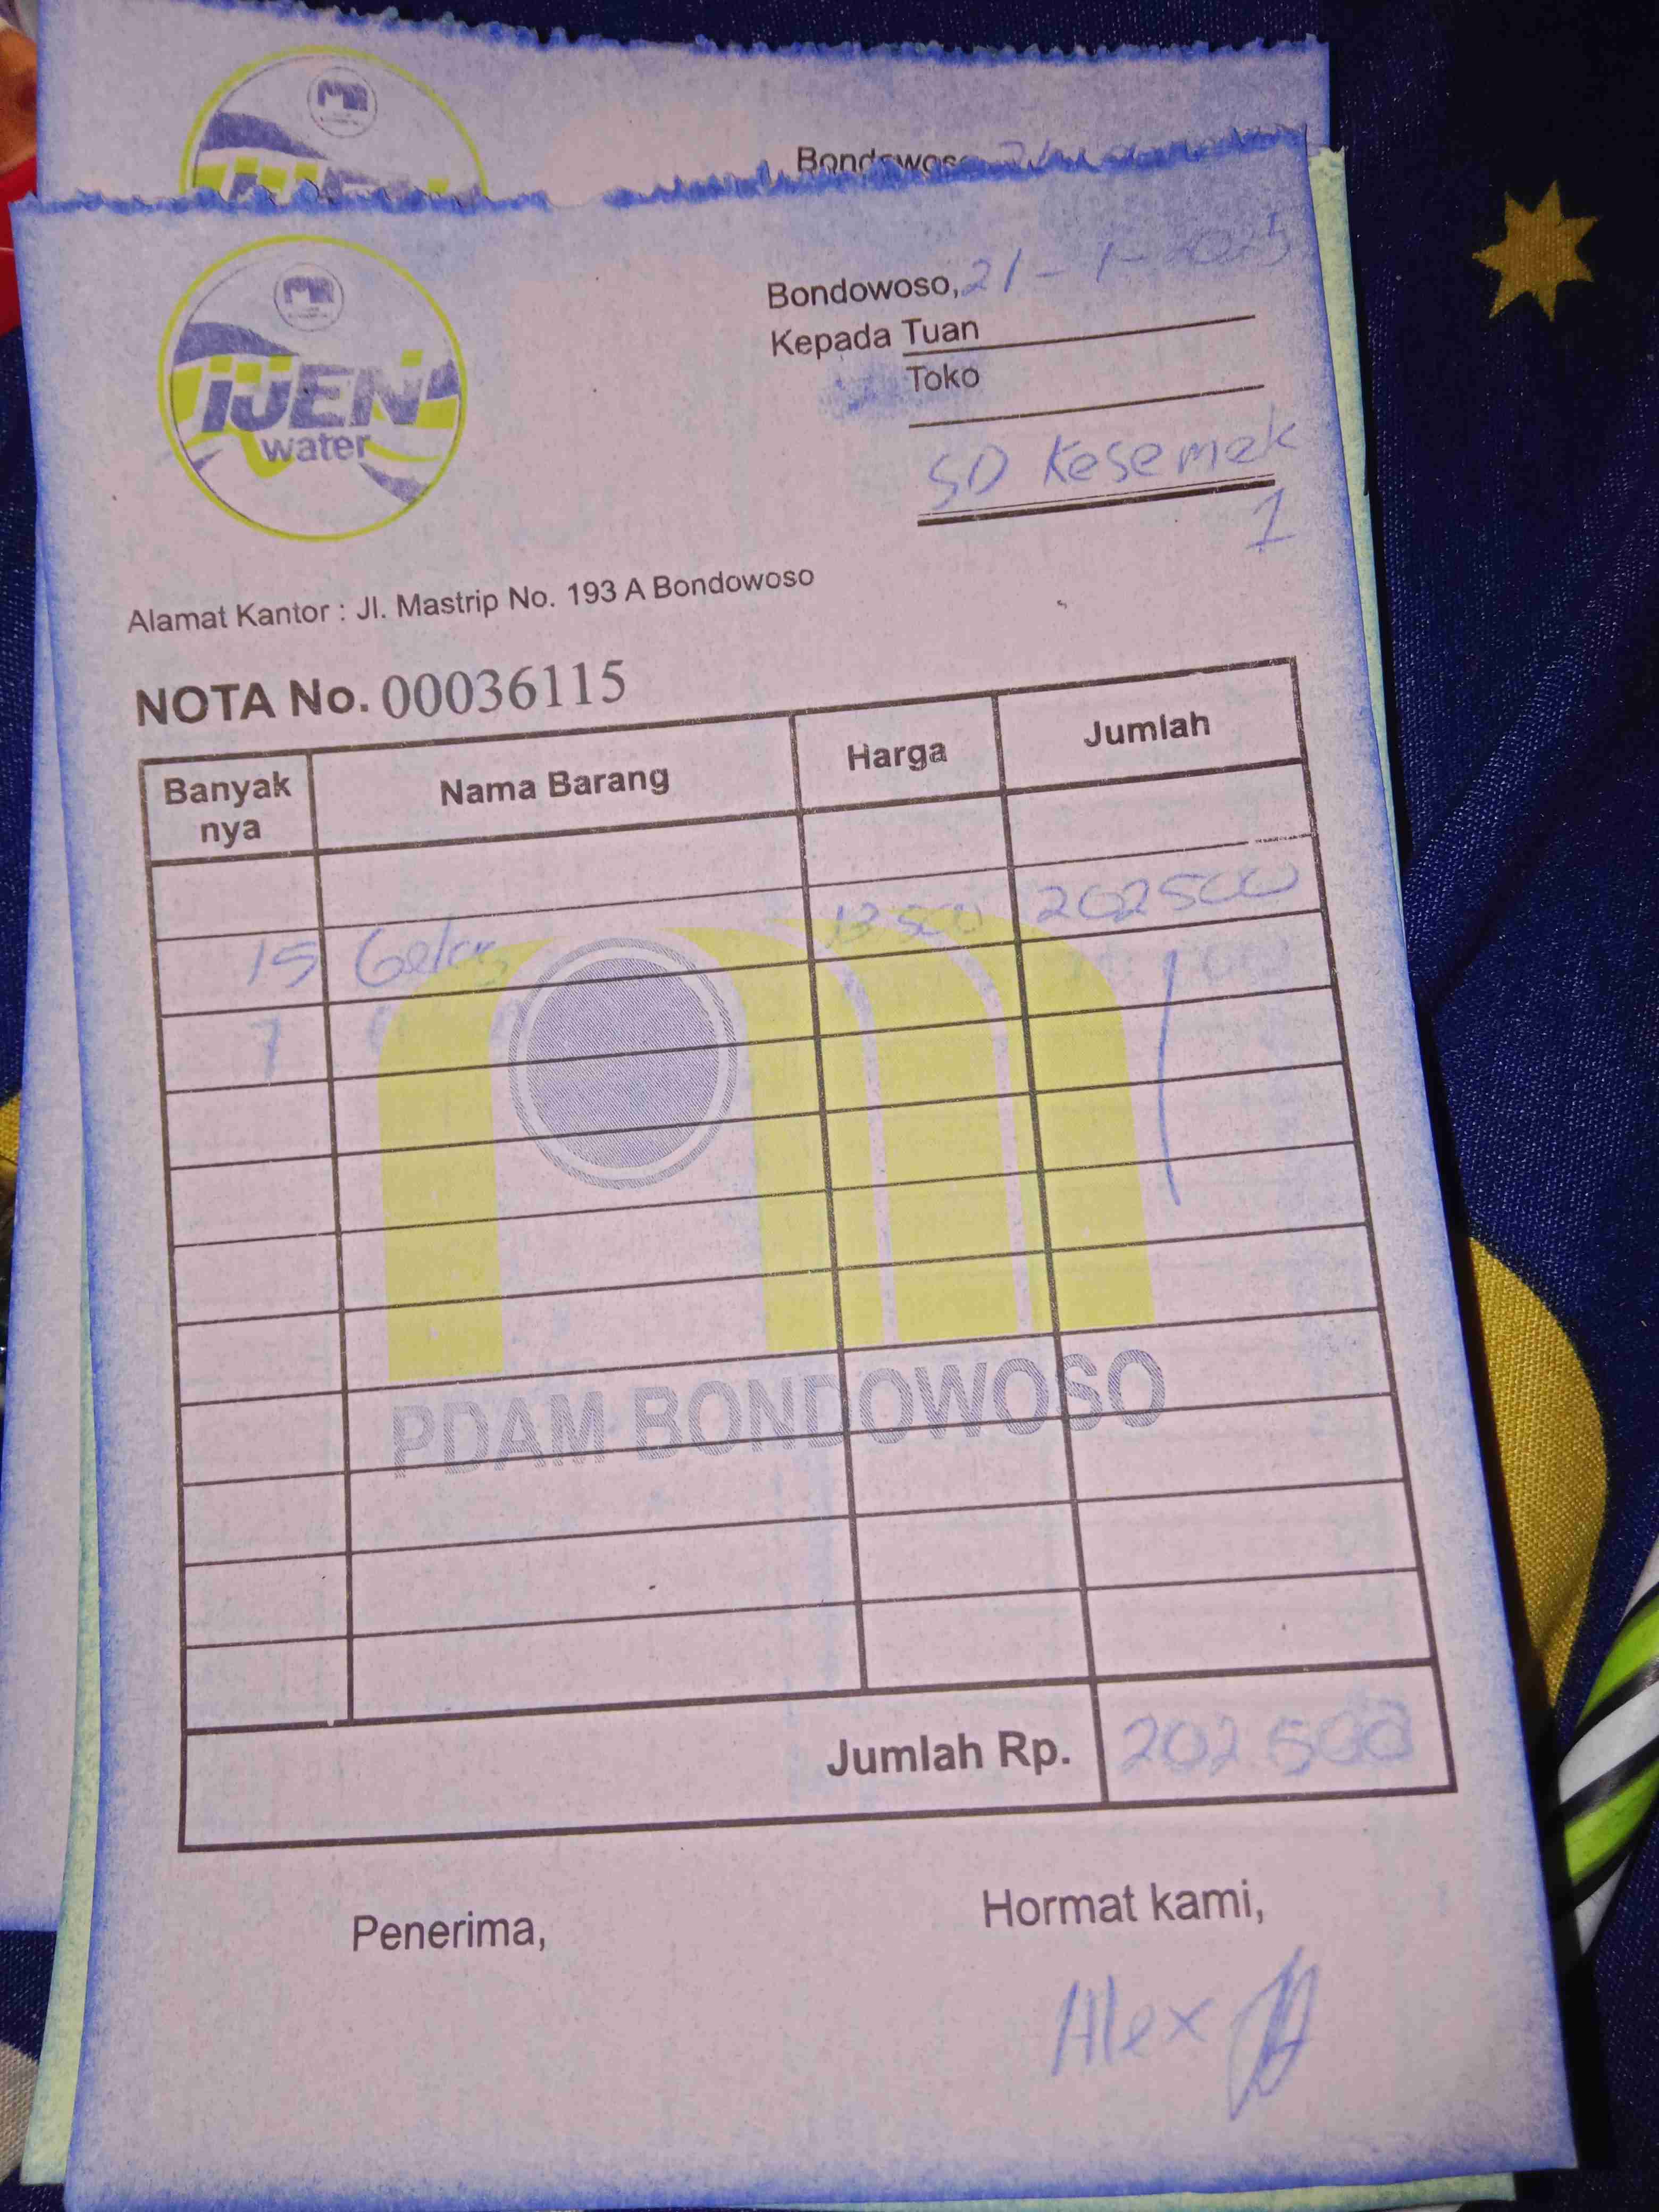 Bondowoso
IJEN
water
Bondowoso, 21-1-2025
Kepada Tuan
Toko
SD Kesemek
1
Alamat Kantor : Jl. Mastrip No. 193 A Bondowoso
NOTA No. 00036115
Banyak nya Nama Barang Harga Jumlah
15 Gelas 13 500 202500
7
PDAM BONDOWOSO
Jumlah Rp. 202.500
Penerima, Hormat kami,
Alex